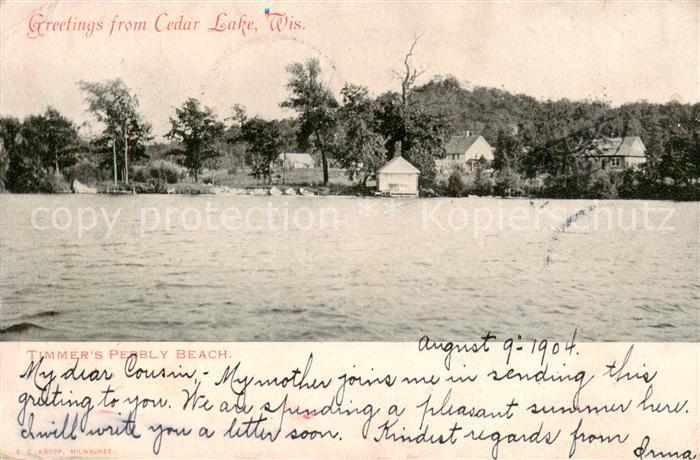 Greetings from Cedar Lake, Wis.
copy protection * Kopierschutz
TIMMER'S PEBBLY BEACH.
August 9th 1904.
My dear Cousin,- My mother joins me in sending this
greeting to you. We are spending a pleasant summer here.
I will write you a letter soon. Kindest regards from
Irma
E. C. KROPP, MILWAUKEE.